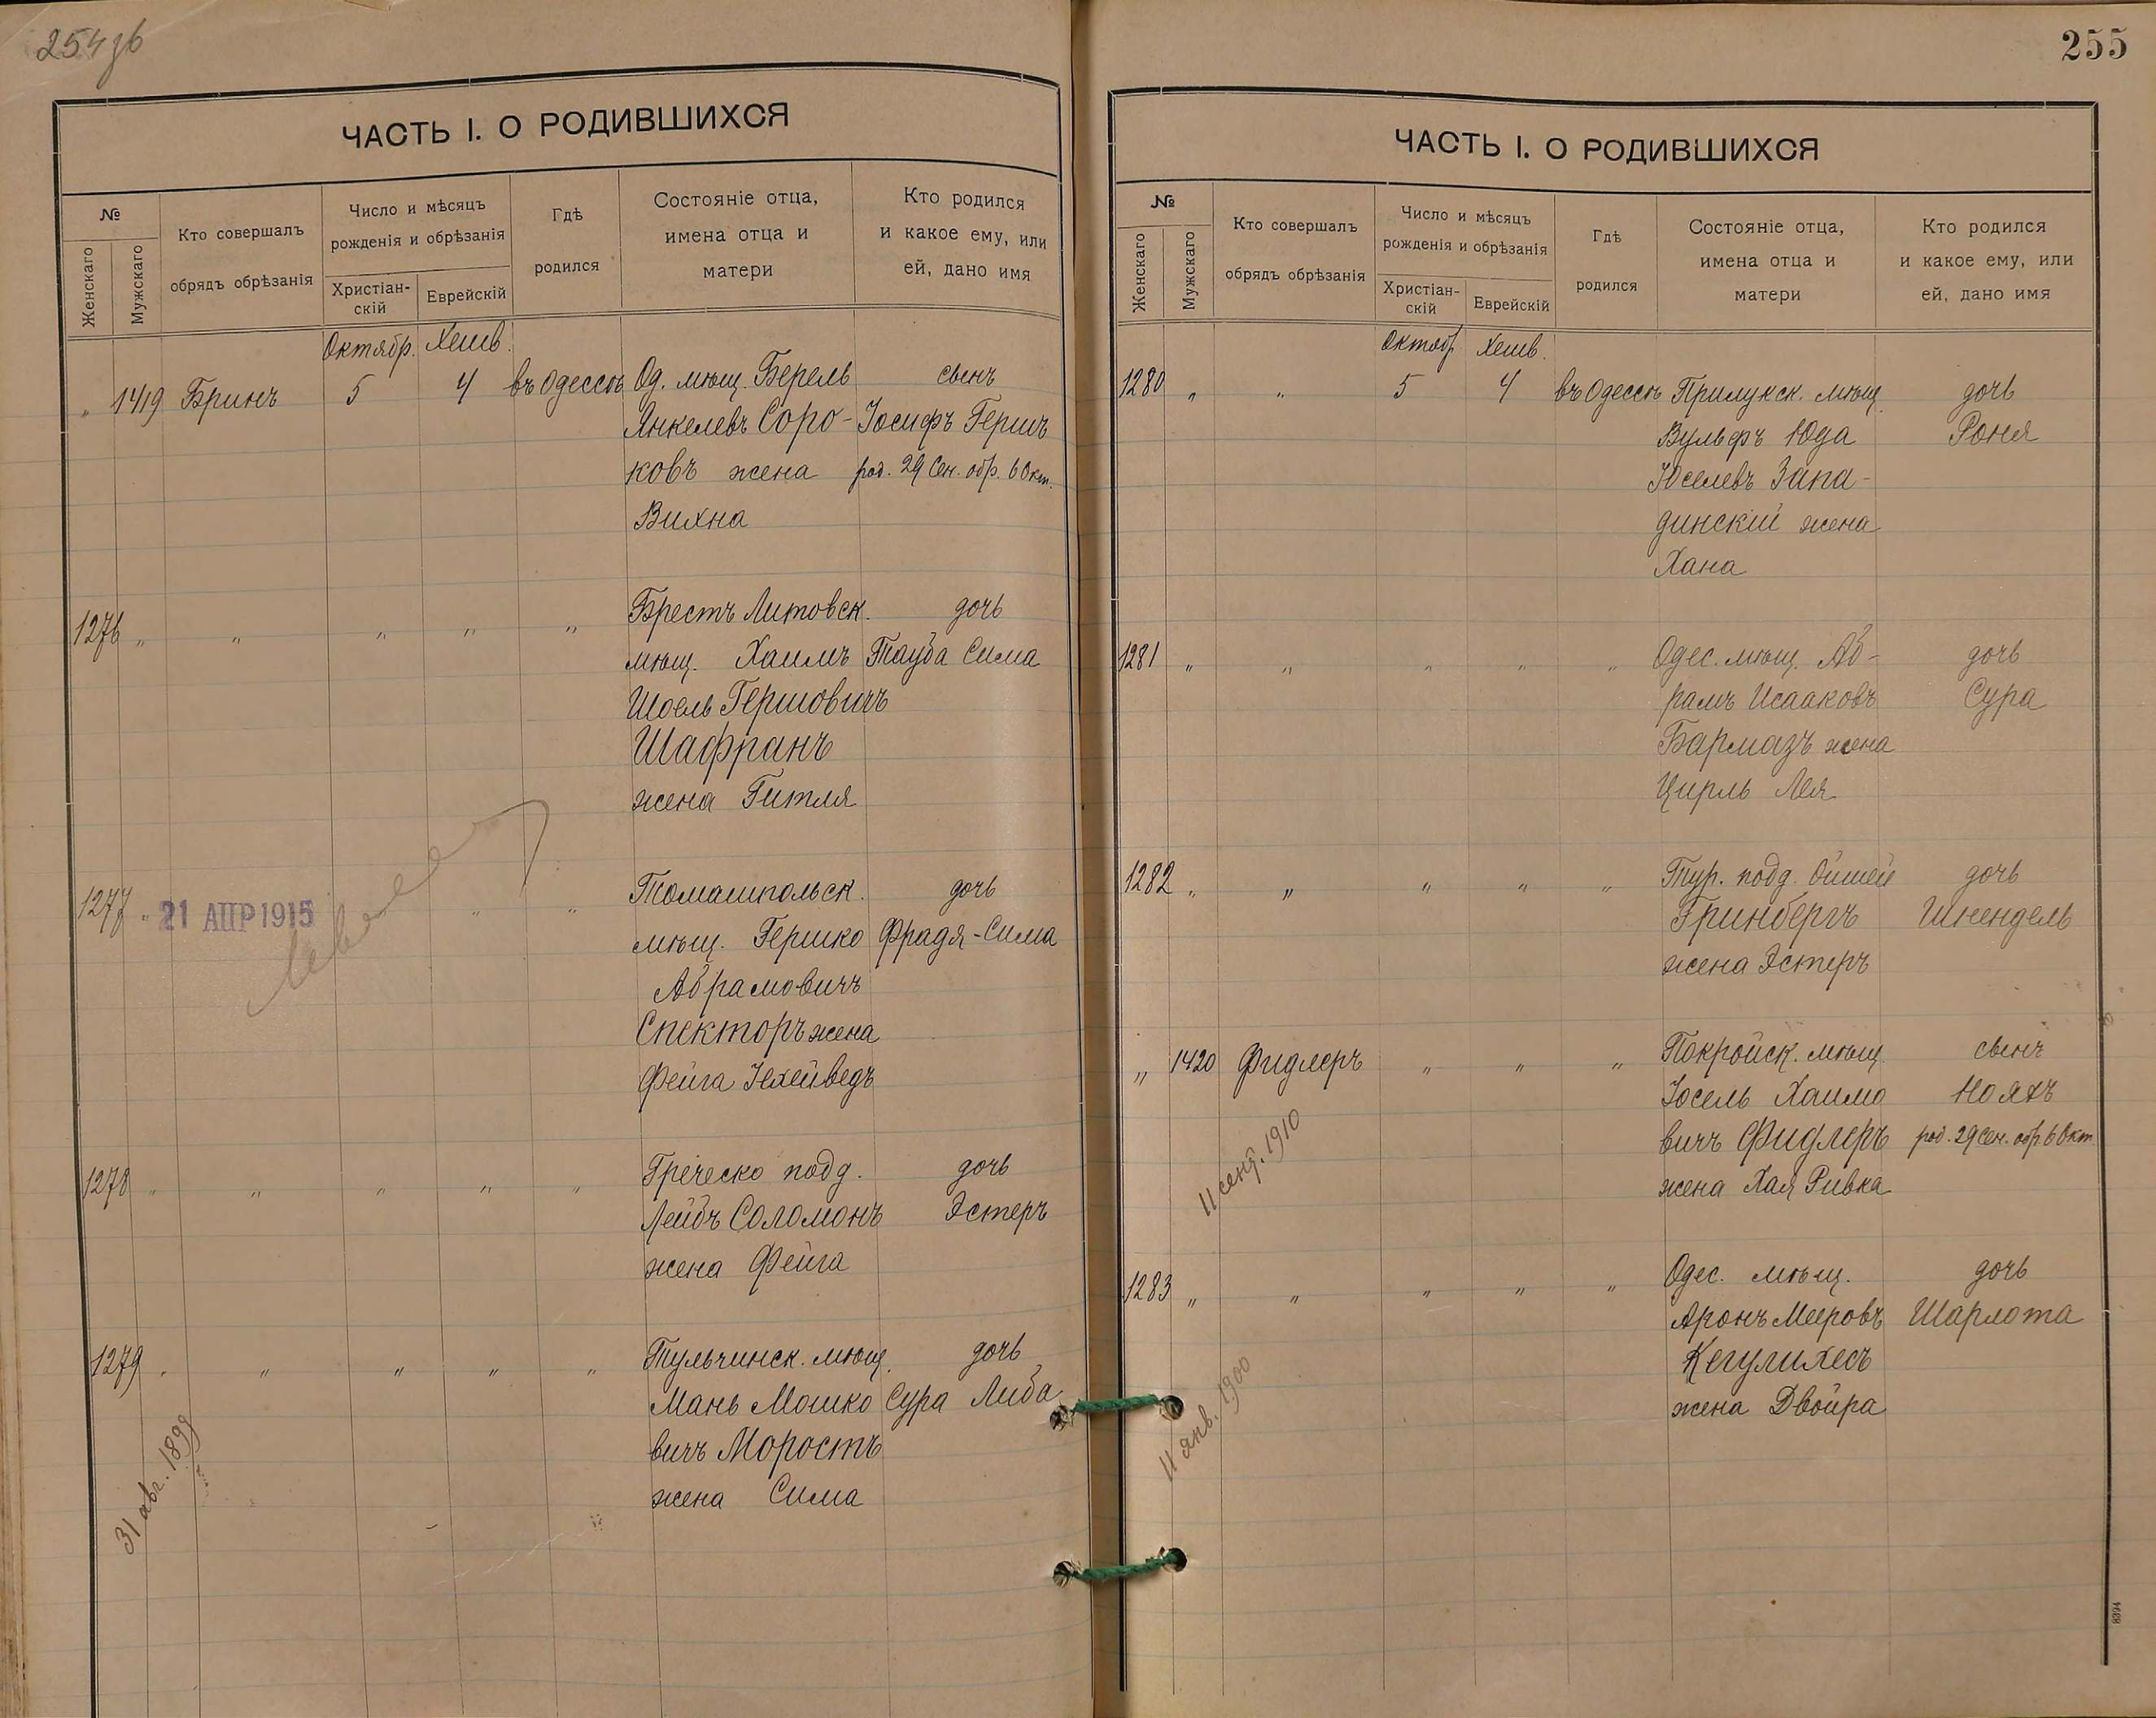 254 зв
ЧАСТЬ I. О РОДИВШИХСЯ
№
Женскаго
Мужскаго
Кто совершалъ
обрядъ обрѣзанія
Число и мѣсяцъ
рожденія и обрѣзанія
Христіан-
скій
Еврейскій
Гдѣ
родился
Состояніе отца,
имена отца и
матери
Кто родился
и какое ему, или
ей, дано имя
Октябр. Хешв.
„ 1419 Бринъ 5 4 въ Одессѣ Од. мѣщ. Берель сынъ
Янкелевъ Соро- Іосифъ Гершъ
ковъ жена род. 29 Сен. обр. 6 Окт.
Вихна
1276 „ „ „ „ „ Брестъ Литовск. дочь
мѣщ. Хаимъ Тауба Сима
Шоель Гершовичъ
Шафранъ
жена Гитля
1277 „ 21 АПР 1915 „ „ Томашпольск. дочь
мѣщ. Гершко Фрадя-Сима
Абрамовичъ
Спекторъ жена
Фейга Іехейведъ
1278 „ „ „ „ „ Греческо подд. дочь
Лейбъ Соломонъ Эстеръ
жена Фейга
1279 „ „ „ „ „ Тульчинск. мѣщ. дочь
Мань Мошко Сура Либа
вичъ Моростъ
жена Сима
31 авг. 1899
255
ЧАСТЬ I. О РОДИВШИХСЯ
№
Женскаго
Мужскаго
Кто совершалъ
обрядъ обрѣзанія
Число и мѣсяцъ
рожденія и обрѣзанія
Христіан-
скій
Еврейскій
Гдѣ
родился
Состояніе отца,
имена отца и
матери
Кто родился
и какое ему, или
ей, дано имя
Октяб Хешв.
1280 „ „ 5 4 въ Одессѣ Прилукск. мѣщ. дочь
Вульфъ Юда Роня
Юселевъ Запа-
динскій жена
Хана
1281 „ „ „ „ „ Одес. мѣщ. Аб- дочь
рамъ Исааковъ Сура
Бармазъ жена
Цирль Лея
1282 „ „ „ „ „ Тур. подд. Ойшей дочь
Гринбергъ Шнендель
жена Эстеръ
„ 1420 Фидлеръ „ „ „ Покройск. мѣщ. сынъ
Іосель Хаимо Нояхъ
вичъ Фидлеръ род. 29 Сен. обр. 6 Окт
жена Хая Ривка
11 сент. 1910
1283 „ „ „ „ „ Одес. мѣщ. дочь
Аронъ Мееровъ Шарлота
Кегулихесъ
жена Двойра
11 янв. 1900
8394